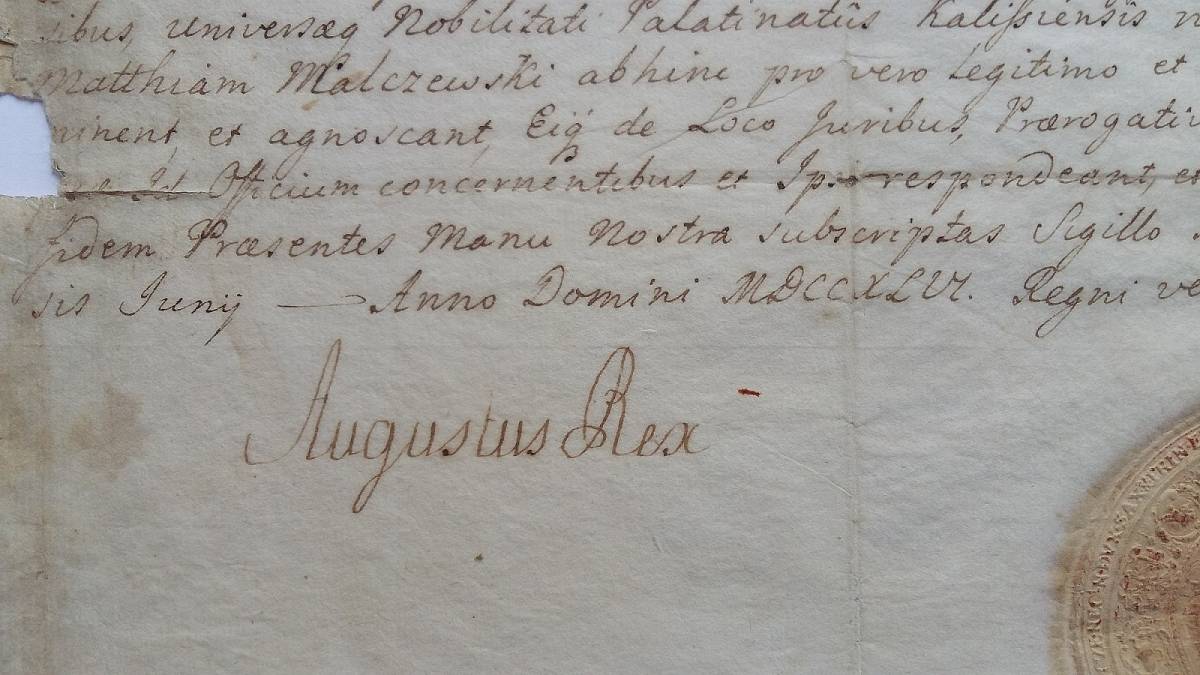 universæq Nobilitati Palatinatûs Kalissiensis
Matthiam Malczewski abhinc pro vero Legitimo et
et agnoscant, Eiq de Loco Juribus, Prærogativ
Id Officium concernentibus et Ip. respondeant, et
fidem Præsentes Manu Nostra subscriptas Sigillo
sis Junij — Anno Domini MDCCXLVI. Regni ve
Augustus Rex